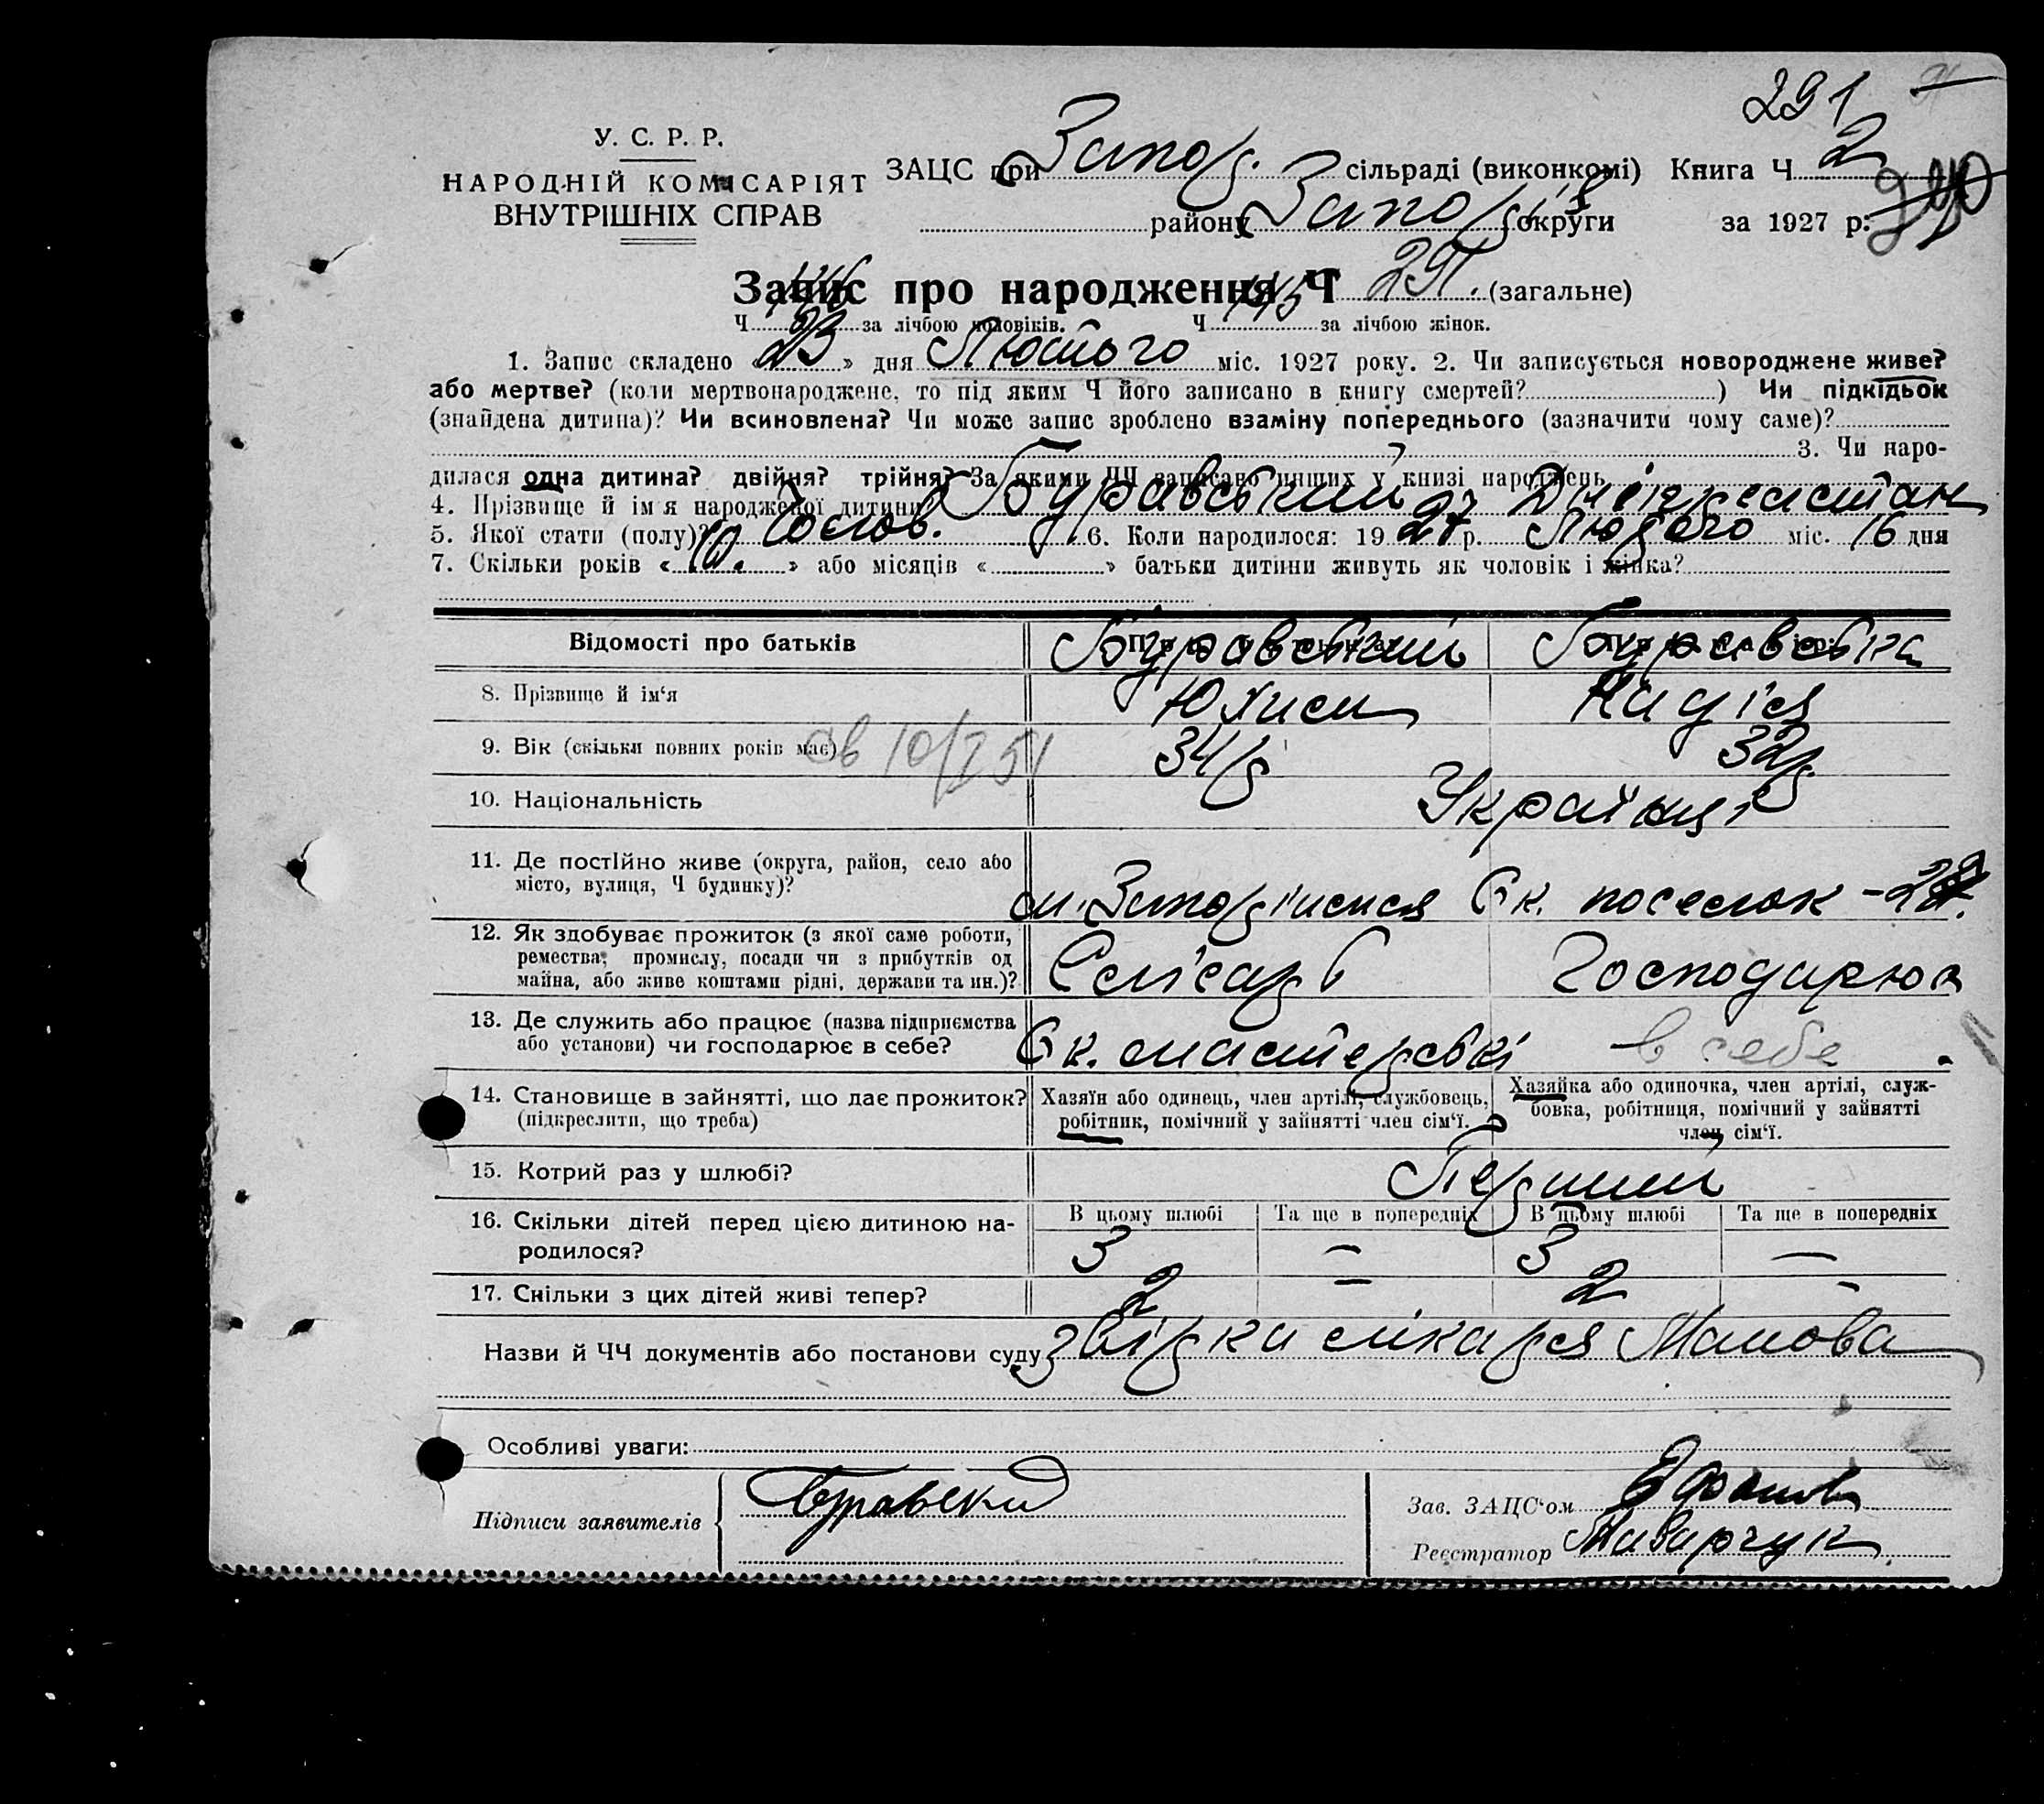 291
У. С. Р. Р.
НАРОДНІЙ КОМІСАРІЯТ
ВНУТРІШНІХ СПРАВ
ЗАЦС при Запор. сільраді (виконкомі) Книга Ч. 2
району Запоріз округи за 1927 р.
Запис про народження Ч 291. (загальне)
Ч. 146 за лічбою чоловіків. Ч. 145 за лічбою жінок.
1. Запис складено «23» дня Лютого міс. 1927 року. 2. Чи записується новороджене живе?
або мертве? (коли мертвонароджене, то під яким Ч його записано в книгу смертей?) Чи підкідьок
(знайдена дитина)? Чи всиновлена? Чи може запис зроблено взаміну попереднього (зазначити чому саме)?
3. Чи наро-
дилася одна дитина? двійня? трійня? За якими ЧЧ записано инших у книзі народжень
4. Прізвище й ім я народженої дитини Буравський
5. Якої статі (полу)? Чолов. 6. Коли народилося: 1927 р. Лютого міс. 16 дня
7. Скільки років «10.» або місяців «» батьки дитини живуть як чоловік і жінка?
Відомості про батьків Буравський Буравська
8. Прізвище й ім‘я Юхим Надія
9. Вік (скільки повних років має) 34/р 32р
10. Національність Українці
11. Де постійно живе (округа, район, село або
місто, вулиця, Ч будинку)? м. Запоріжжя Єк. поселок - 29.
12. Як здобуває прожиток (з якої саме роботи,
ремества, промислу, посади чи з прибутків од
майна, або живе коштами рідні, держави та ин.)? Слісарь Господарює
13. Де служить або працює (назва підприємства
або установи) чи господарює в себе? Єк. майстерські в себе
14. Становище в зайнятті, що дає прожиток?
(підкреслити, що треба)
Хазяїн або одинець, член артілі, службовець,
робітник, помічний у зайнятті член сім‘ї.
Хазяйка або одиночка, член артілі, служ-
бовка, робітниця, помічний у зайнятті
член сім‘ї.
15. Котрий раз у шлюбі? Перший
16. Скільки дітей перед цією дитиною на-
родилося?
В цьому шлюбі Та ще в попередніх В цьому шлюбі Та ще в попередніх
3 — 3 —
17. Скільки з цих дітей живі тепер? 2 — 2 —
Назви й ЧЧ документів або постанови суду Звірка лікаря
Особливі уваги:
Підписи заявителів Буравский
Зав. ЗАЦС‘ом
Реєстратор